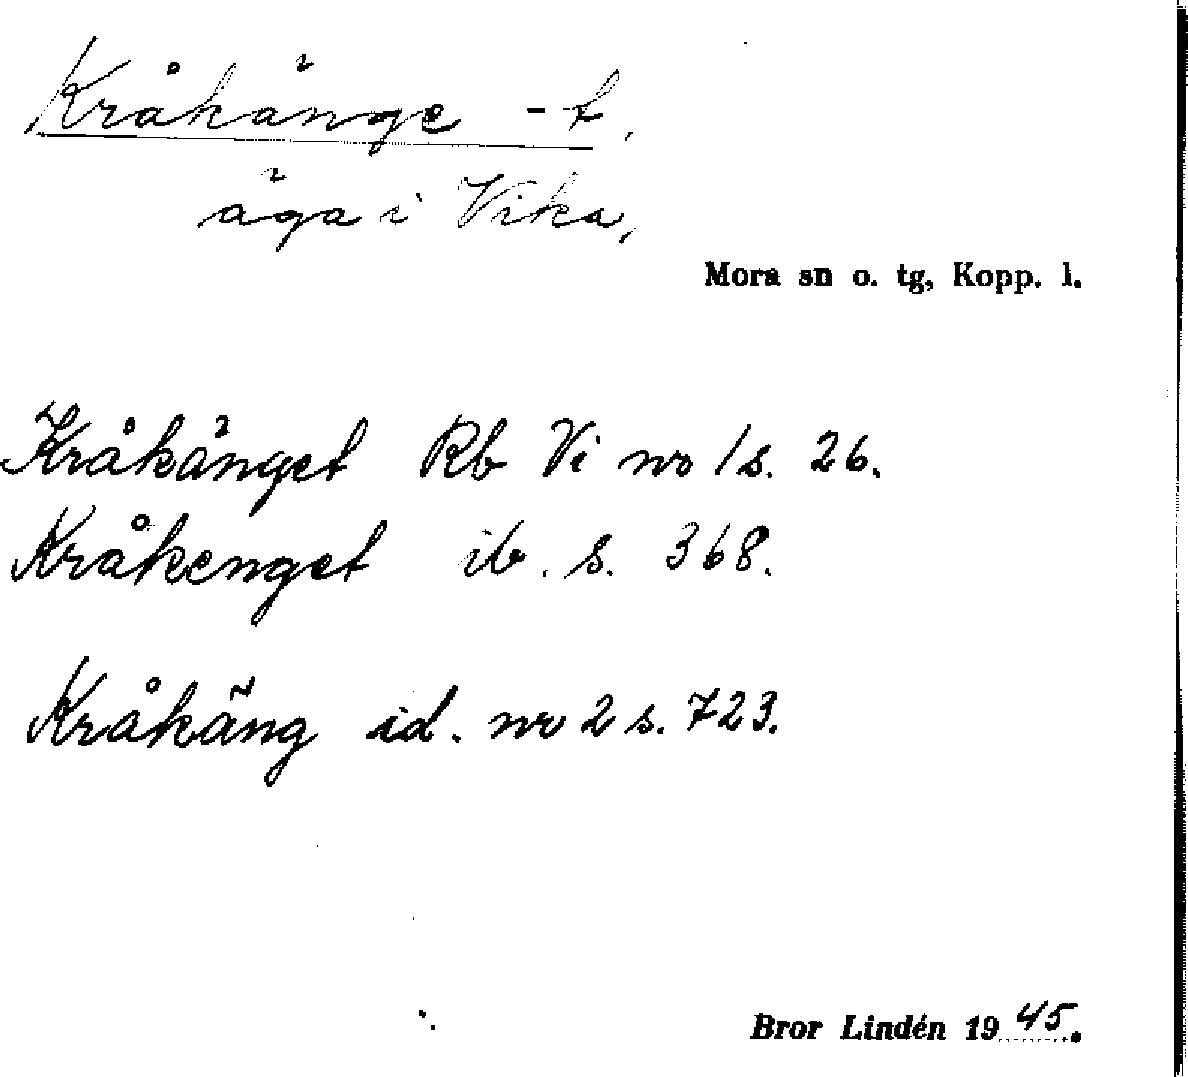 Kråkänge -t,
äga i Vika,
Mora sn o. tg, Kopp. l.
Kråkänget Rb Vi nr 1 s. 26.
Kråkenget ib. s. 368.
Kråkäng id. nr 2 s. 723.
Bror Lindén 1945.